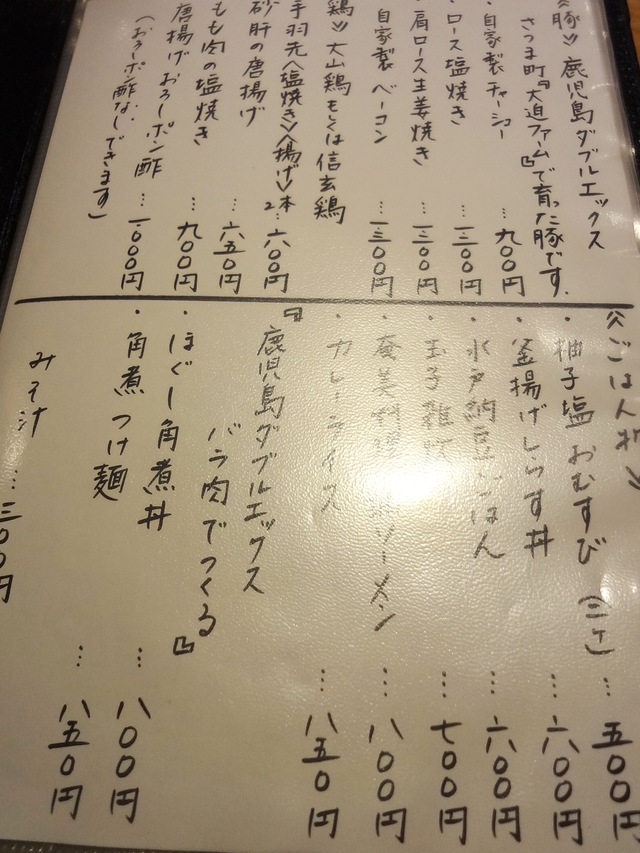 《豚》 鹿児島ダブルエックス
さつま町『大迫ファーム』で育った豚です.
・自家製チャーシュー …九〇〇円
・ロース塩焼き …一三〇〇円
・肩ロース生姜焼き …一三〇〇円
自家製ベーコン …一三〇〇円
鶏》大山鶏もしくは信玄鶏
手羽先〈塩焼き〉〈揚げ〉2本…六〇〇円
砂肝の唐揚げ …六五〇円
もも肉の塩焼き …九〇〇円
唐揚げおろしポン酢 …一〇〇〇円
(おろしポン酢なしできます)
《ごはん折》
・柚子塩おむすび(二ケ) …五〇〇円
・釜揚げしらす丼 …六〇〇円
・水戸納豆ごはん …六〇〇円
・玉子雑炊 …七〇〇円
・奄美料理 ソーメン …八〇〇円
・カレーライス …八五〇円
『鹿児島ダブルエックス
バラ肉でつくる』
・ほぐし角煮丼 …八〇〇円
・角煮つけ麺 …八五〇円
みそ汁 …三〇〇円